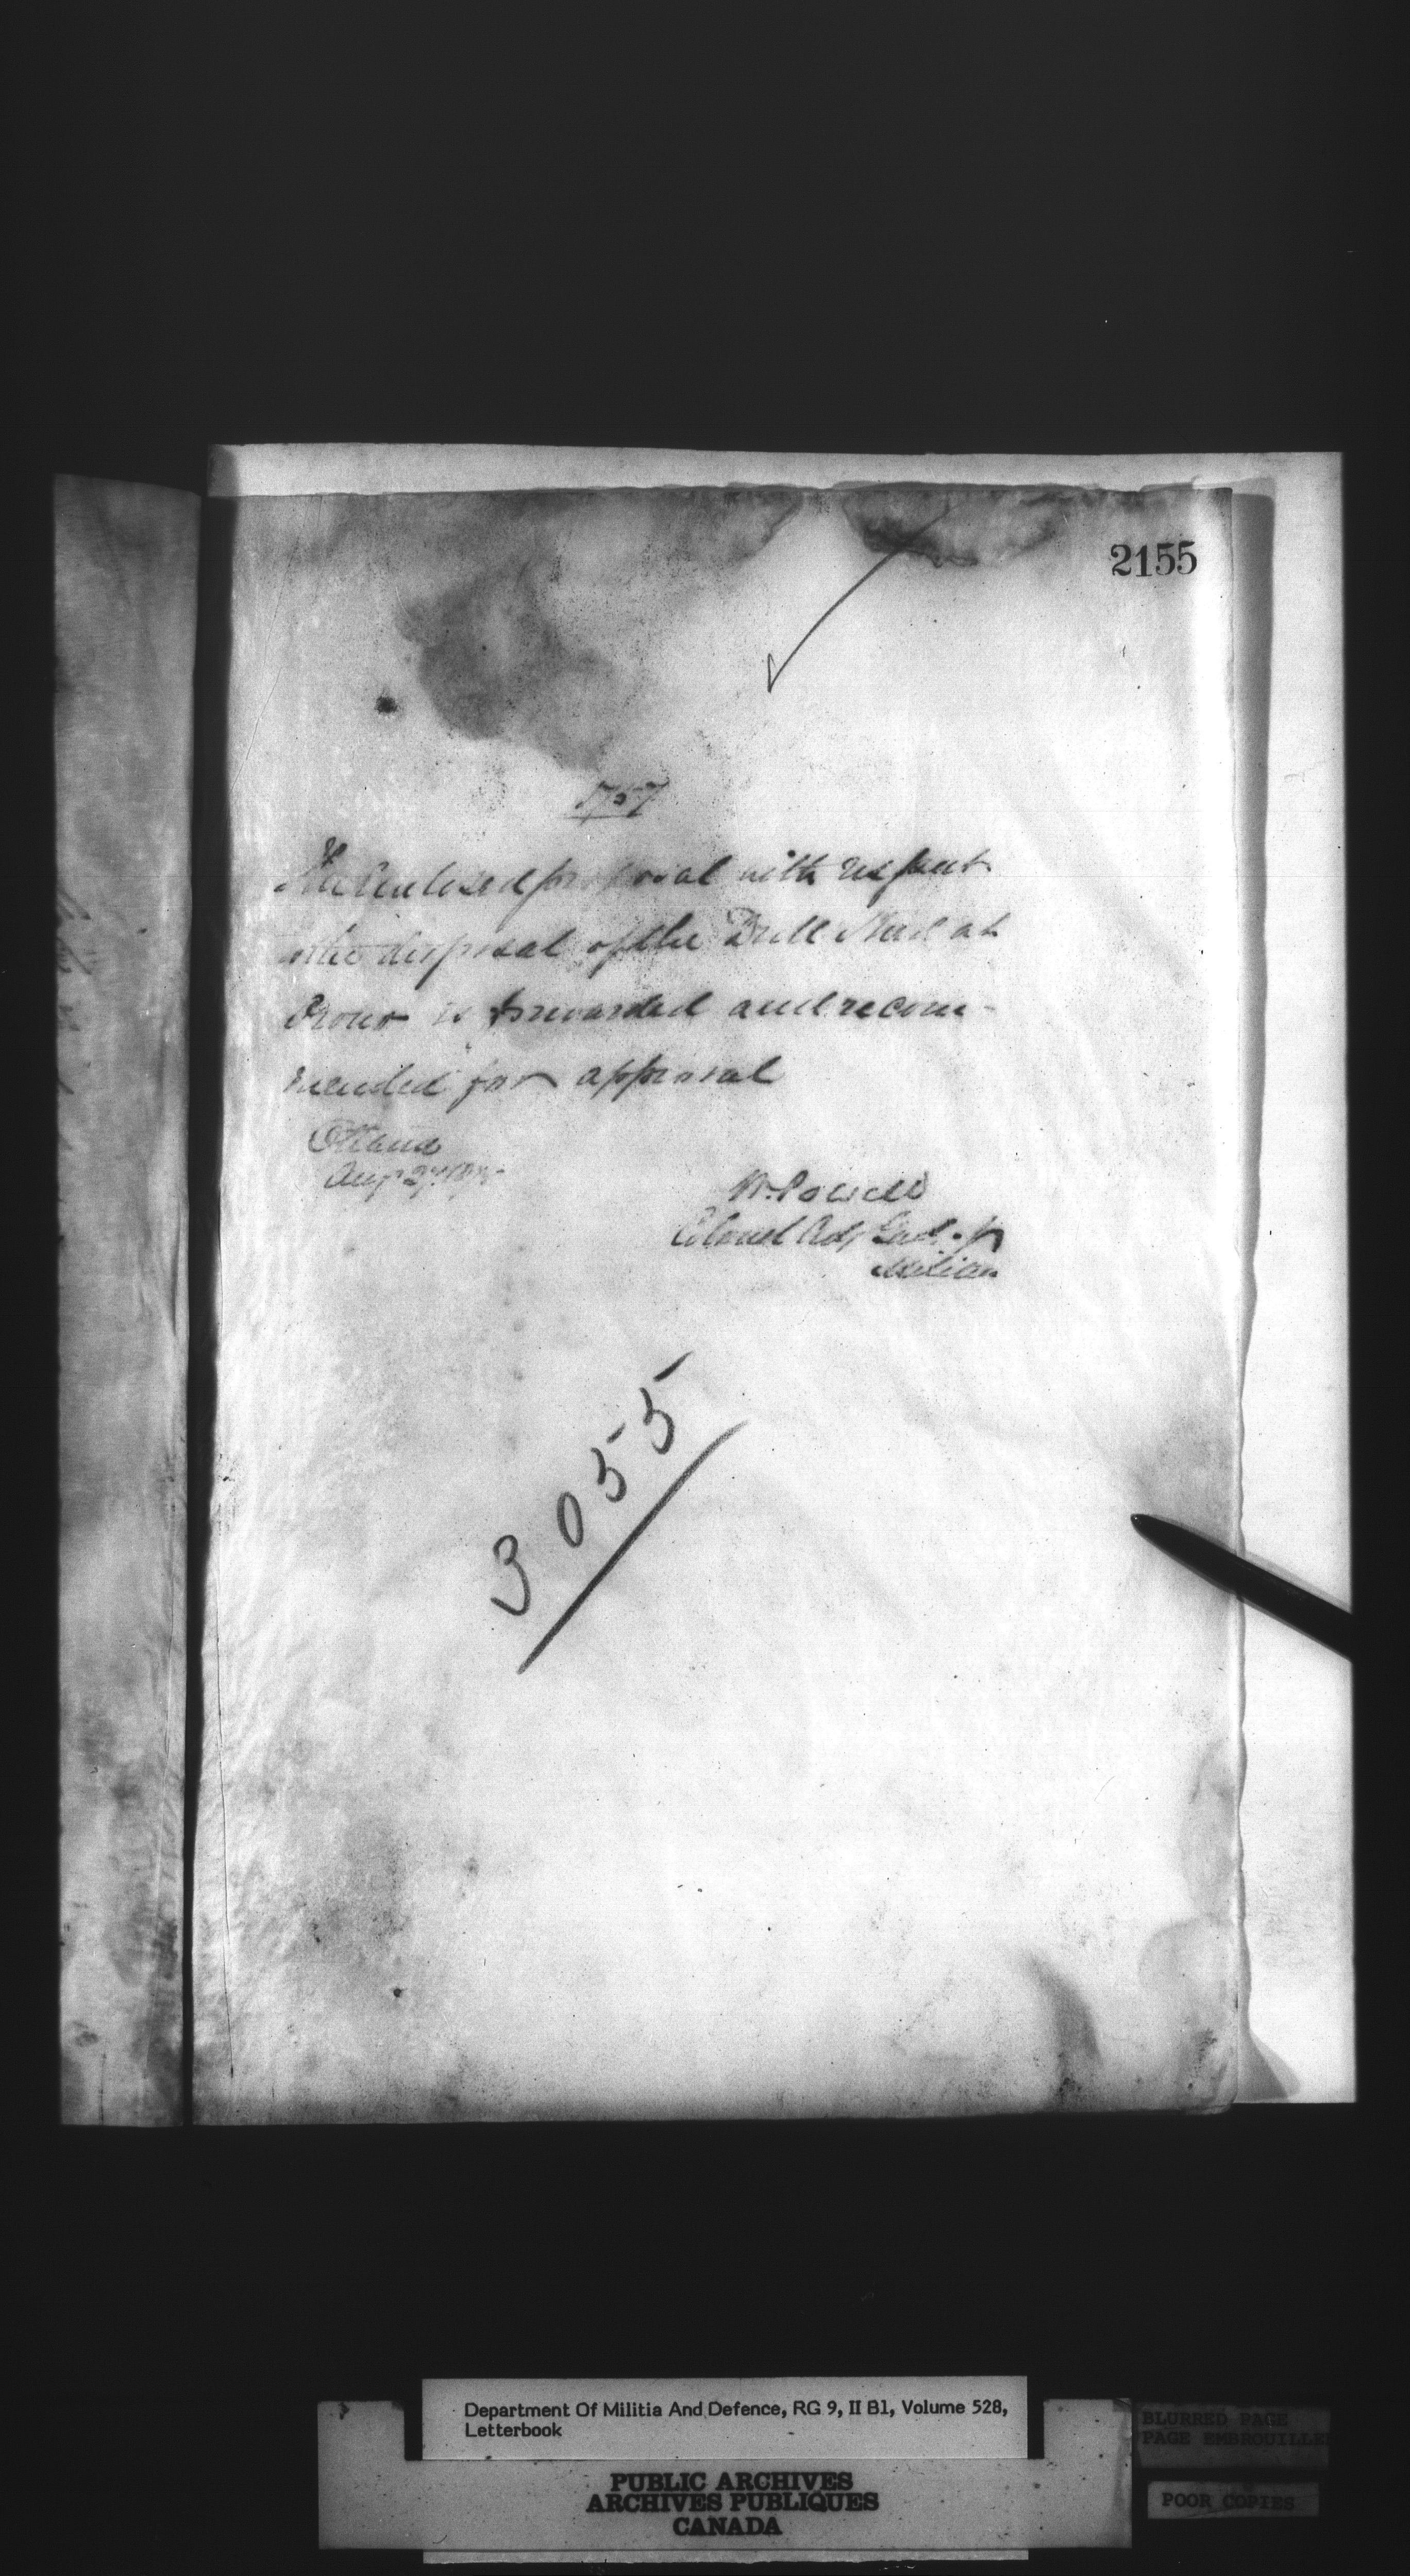 2155
1757
The Enclosed proposal with respect
to the disposal of the Drill Shed at
Orono is forwarded and recom-
mended for approval
Ottawa
Aug
W. Powell
Colonel Adj Genl. of
Militia
3055
Department Of Militia And Defence, RG 9, II B1, Volume 528,
Letterbook
PUBLIC ARCHIVES
ARCHIVES PUBLIQUES
CANADA
BLURRED PAGE
PAGE EMBROUILLE
POOR COPIES